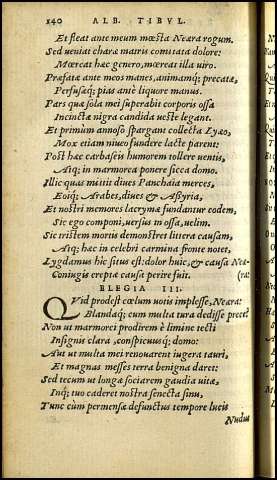 140 ALB. TIBVL.
Et fleat ante meum mœsta Neæra rogum.
Sed ueniat chara matris comitata dolore:
Mœreat hæc genero, mœreat illa uiro.
Præfatæ ante meos manes, animamq; precatæ,
Perfusæq; pias antè liquore manus.
Pars quæ sola mei superabit corporis ossa
Incinctæ nigra candida ueste legant.
Et primum annoso spargant collecta Lyæo,
Mox etiam niueo fundere lacte parent:
Post hæc carbaseis humorem tollere uentis,
Atq; in marmorea ponere sicca domo.
Illic quas mittit diues Panchaia merces,
Eoiq; Arabes, diues & Assyria,
Et nostri memores lacrymæ fundantur eodem,
Sic ego componi, uersus in ossa, uelim.
Sed tristem mortis demonstret littera causam,
Atq; hæc in celebri carmina fronte notet,
Lygdamus hic situs est: dolor huic, & causa Neæ-
Coniugis ereptæ causa perire fuit. (ræ
ELEGIA III.
QVid prodest cœlum uotis implesse, Neæra:
Blandaq; cum multa tura dedisse prece?
Non ut marmorei prodirem è limine tecti
Insignis clara, conspicuusq; domo:
Aut ut multa mei renouarent iugera tauri,
Et magnas messes terra benigna daret:
Sed tecum ut longæ sociarem gaudia uitæ,
Inq; tuo caderet nostra senecta sinu,
Tunc cùm permensæ defunctus tempore lucis
Nudus